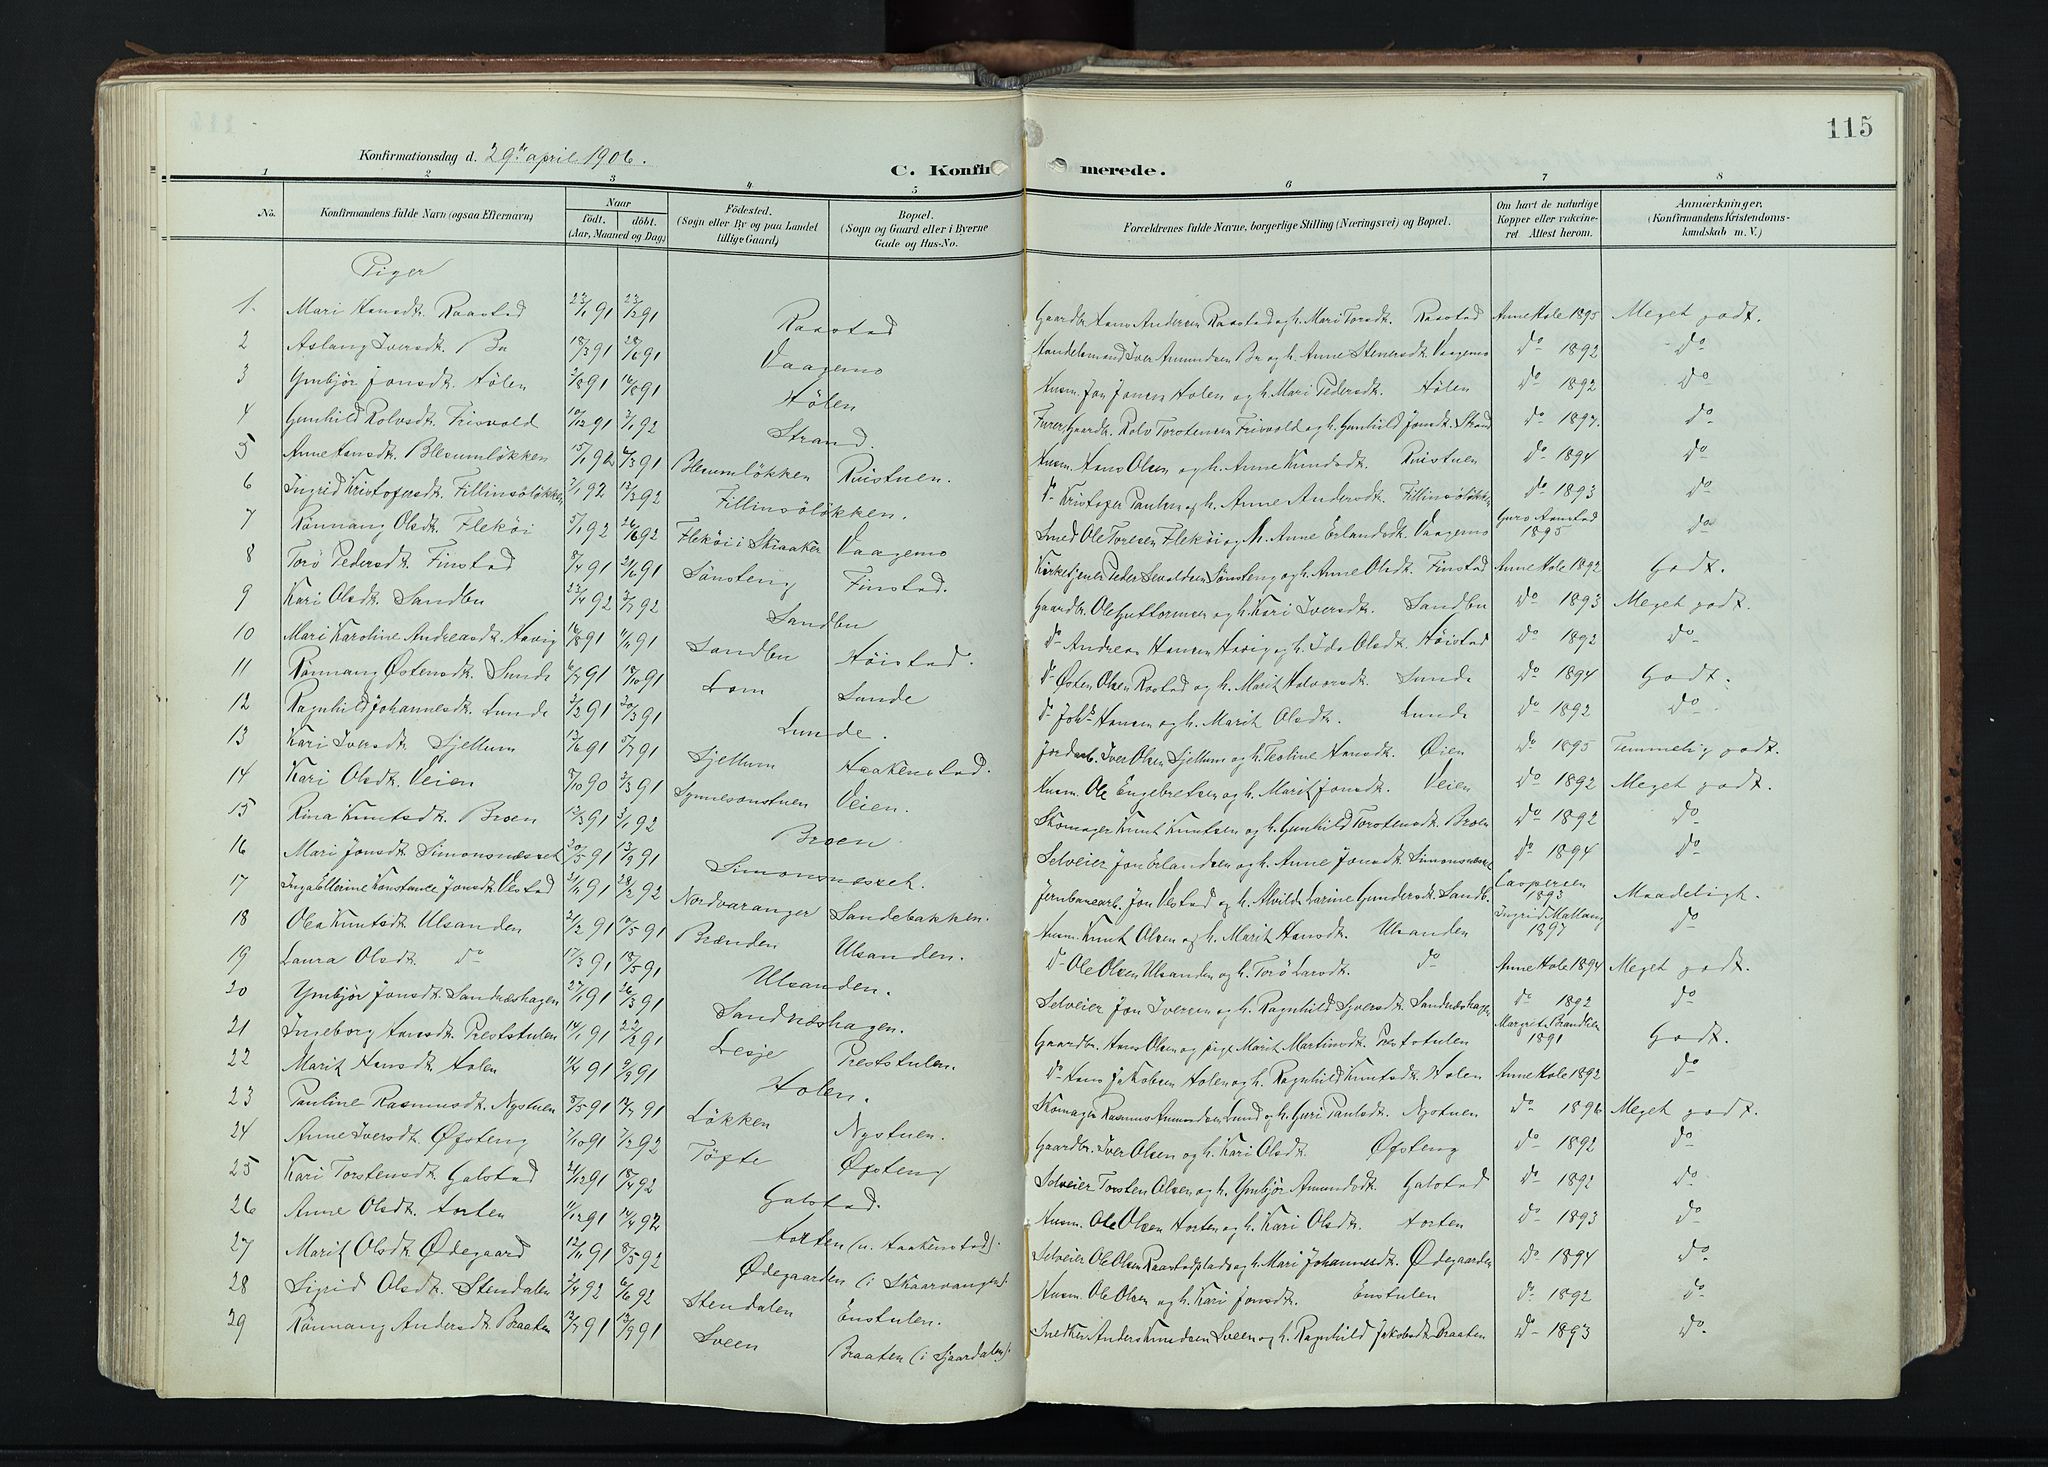 115
Konfirmationsdag d. 29de april 1906.
C. Konfirmerede.
1 2 3 4 5 6 7 8
No. Konfirmandens fulde Navn (ogsaa Efternavn) Naar født. døbt. (Aar, Maaned og Dag) Fødested. (Sogn eller By og paa Landet tillige Gaard) Bopæl. (Sogn og Gaard eller i Byerne Gade og Hus-No. Forældrenes fulde Navne, borgerlige Stilling (Næringsvei) og Bopæl. Om havt de naturlige Kopper eller vakcineret Attest herom. Anmærkninger. (Konfirmandens Kristendomskundskab m. V.)
Piger
1. Mari Hansdt. Raastad 23/1 91 23/2 91 Raastad Gaardbr. Hans Andersen Raastad og h. Mari Torsdt. Raastad Anne Hole 1895 Meget godt.
2 Aslaug Iversdt. Bu 18/3 91 28/6 91 Vaagemo Handelsmand Iver Amundsen Bu og h. Anne Stenersdt. Vaagemo do 1892 do
3 Ymbjør Jonsdt. Hølen 2/8 91 16/8 91 Hølen Husm. Jon Jonsen Holen og h. Mari Pedersdt. Hølen do 1892 do
4 Gunhild Rolvsdt. Frisvold 10/12 91 3/1 92 Strand. Gaardb. Rolv Torstensen Frisvold og h. Gunhild Jonsdt. Strand do 1897. do
5 Anne Hansdt. Blesumløkken 15/1 92 6/3 91 Blesumløkken Rustuen. Husm. Hans Olsen og h. Anne Knudsdt. Rustuen do 1894 do
6 Ingrid Kristofersdt. Fillinsøløkken 2/1 92 13/3 92 Fillinsøløkken. do Kristofer Paulsen og h. Anne Andersdt. Fillinsøløkken do 1893 do
7 Rønnaug Olsdt. Flekøi 5/1 92 26/6 92 Flekøi i Skiaaker Vaagemo Smed Ole Toresen Flekøi og h. Anne Erlandsdt. Vaagemo Guro Aanstad 1895 do
8 Torø Pedersdt. Finstad 8/4 91 21/6 91 Sønsteng Finstad. Kirketjener Peder Sevaldsen Sønsteng og h. Anne Olsdt. Finstad Anne Hole 1892 Godt.
9 Kari Olsdt. Sandbu 23/4 92 3/7 92 Sandbu Gaardb. Ole Guttormsen og h. Kari Iversdt. Sandbu do 1893 Meget godt.
10 Mari Karoline Andreasdt. Havig 16/8 91 11/1 91 Sandbu Høistad. do Andreas Hansen Havig og h. Ida Olsdt. Høistad do 1892 do
11 Rønnaug Østensdt. Sunde 6/7 91 18/10 91 Lom Sunde do Østen Olsen Raastad og h. Marit Halvorsdt. Sunde do 1894 Godt.
12 Ragnhild Johannesdt. Lunde 3/2 91 30/3 91 Lunde. do Johs Hansen og h. Marit Olsdt. Lunde do 1892 do
13 Kari Iversdt. Sjellum 13/6 91 5/7 91 Sjellum Haakenstad. Jordarb. Iver Olsen Sjellum og h. Teoline Hansdt. Øien do 1895 Temmelig godt.
14 Kari Olsdt. Veien 8/10 90 2/3 91 Veien. Husm. Ole Engebretsen og h. Marit Jonsdt. Veien do 1892 Meget godt.
15 Rina Knutsdt. Broen 13/3 91 3/1 92 Broen Skomager Knut Knutsen og h. Gunhild Torstensdt. Broen do 1892 do
16 Mari Jonsdt. Simonsnæsset 20/5 91 13/9 91 Simonsnæsset. Selveier Jon Erlandsen og h. Anne Jonsdt. Simonsnæsset do 1894 do
17 Inga Ellerine Konstance Jonsdt. Vestad 21/11 91 28/2 92 Nordvaranger Sandebakken. Jernbanearb. Jon Vestad og h. Alvilde Larine Gundersdt. Sandb. Caspersen 1893 Maadeligt.
18 Olea Knutsdt. Ulsanden 21/2 91 17/5 91 Brænden Ulsanden. Husm. Knut Olsen og h. Marit Hansdt. Ulsanden Ingrid Mallang 1897 do
19 Laura Olsdt. do 17/3 91 18/5 91 Ulsanden. do Ole Olsen Ulsanden og h. Torø Larsdt. do Anne Hole 1894 Meget godt.
20 Ymbjør Jonsdt. Sandnæshagen 27/1 91 26/3 91 Sandnæshagen. Selveier Jon Iversen og h. Ragnhild Syversdt. Sandnæshagen do 1892 do
21 Ingeborg Hansdt. Preststulen 14/1 91 22/2 91 Lesje Preststulen. Gaardbr. Hans Olsen og pige Marit Martinsdt. Preststulen Margrete Brandlien 1891 Godt.
22 Marit Hansdt. Holen 11/4 91 9/9 91 Holen. do Hans Jakobsen Holen og h. Ragnhild Knutsdt. Holen Anne Hole 1892 do
23 Pauline Rasmusdt. Nystuen 8/5 91 17/7 91 Løkken Nystuen. Skomager Rasmus Amundsen Lund og h. Guri Paulsdt. Nystuen do 1896 Meget godt.
24 Anne Iversdt. Øfsteng 7/10 91 7/2 92 Tøfte Øfsteng Gaardbr. Iver Olsen og h. Kari Olsdt. Øfsteng do 1892 do
25 Kari Torstensdt. Galstad 21/12 91 18/4 92 Galstad. Selveier Torsten Olsen og h. Ymbjør Amundsdt. Galstad do 1892 do
26 Anne Olsdt. Horten 11/12 91 14/4 92 Horten (u. Haakenstad). Husm. Ole Olsen Horten og h. Kari Olsdt. Horten do 1893 do
27 Marit Olsdt. Ødegaard 12/11 91 8/5 92 Ødegaarden (i Skaarvangen) Selveier Ole Olsen Raastadplads og h. Mari Johannesdt. Ødegaarden do 1894 do
28 Sigrid Olsdt. Stendalen 2/4 92 6/6 92 Stendalen Enstulen. Husm. Ole Olsen og h. Kari Jonsdt. Enstulen do 1892 do
29 Rønnaug Andersdt. Braaten 12/7 91 13/9 91 Sveen Braaten (i Sjaardalen). Snedker Anders Knudsen Sveen og h. Ragnhild Jakobsdt. Braaten do 1893 do.